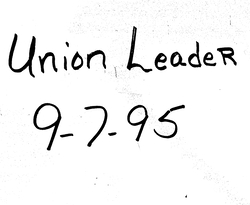 Union Leader
9-7-95